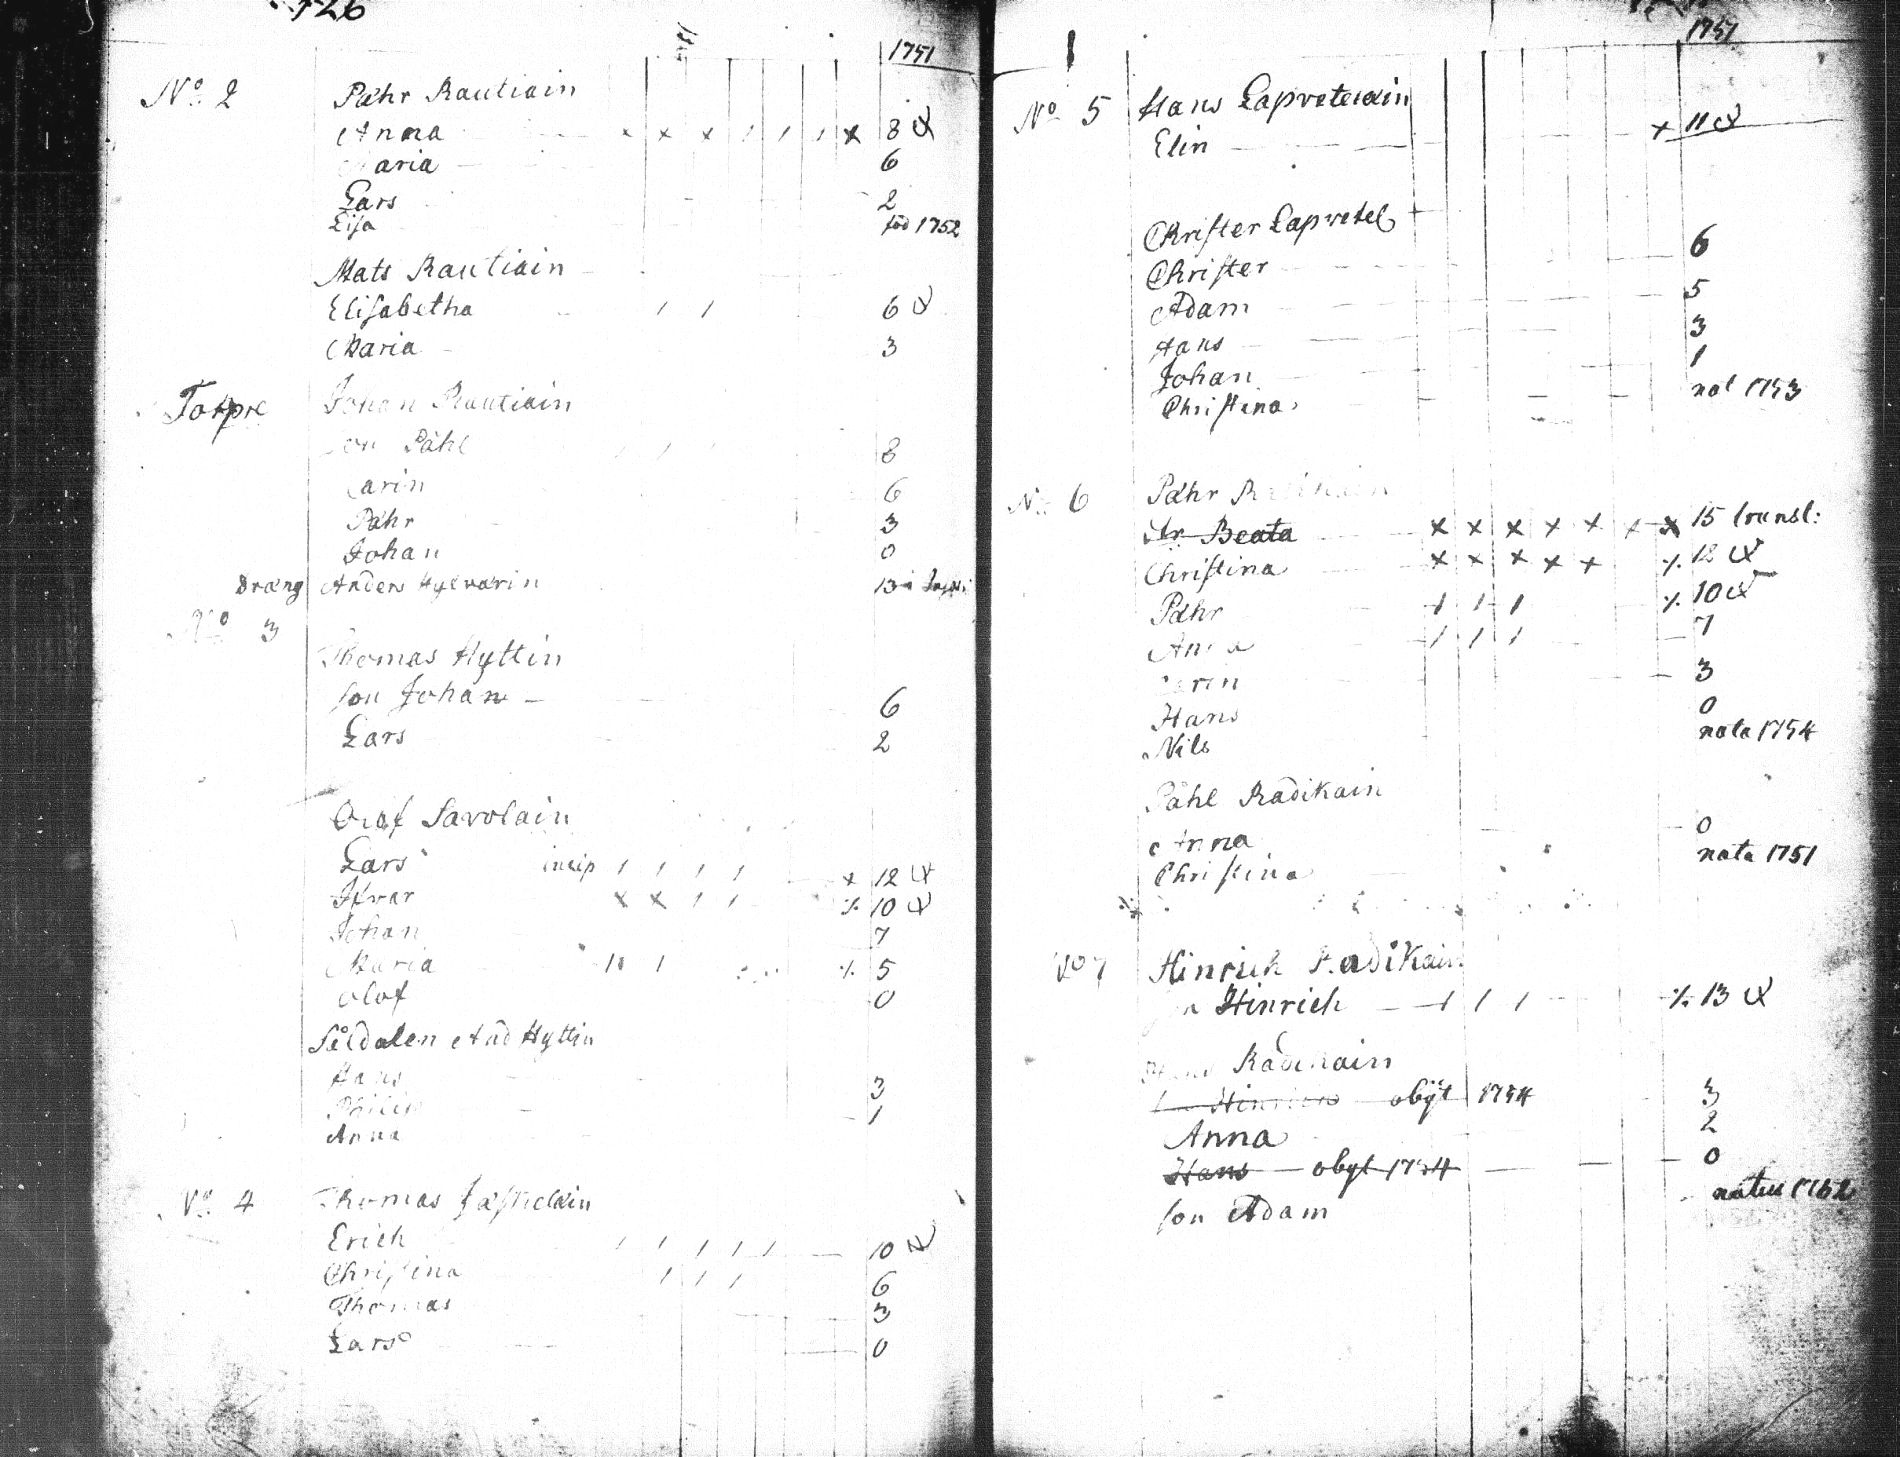 126
1751
No 2 Påhr Rautiain
Anna x x x / / / x 8
Maria 6
Lars 2
Lisa föd 1752
Mats Rautiain
Elisabetha / / 6
Maria 3
Torpre Johan Rautiain
son Påhl / / / 8
Carin 6
Påhr 3
Johan 0
Dräng Anders Hyvärin 13
No 3
Thomas Hyttin
son Johan 6
Lars 2
Olof Savolain
Lars incip / / / / x 12
Ifvar x x / / ./. 10
Johan 7
Maria ./. 5
Olof 0
Såldaten And Hyttin
Hans 3
Philip 1
Anna
No 4 Thomas Jäskeläin
Erich / / / / / 10
Christina / / / 6
Thomas 3
Lars 0
1751
No 5 Hans Lapveteläin
Elin x 11
Christer Lapvetel
Christer 6
Adam 5
Hans 3
Johan 1
Christina nat 1753
No 6 Påhr Radikain
Beata x x x x x x x 15 transl:
Christina x x x x x ./. 12
Påhr / / / ./. 10
Anna / / / 7
Carin 3
Hans 0
Nils nata 1754
Påhl Radikain
Anna 0
Christina nata 1751
No 7 Hinrich Radikain
son Hinrich / / / ./. 13
Radikain
Hinrich obijt 1754 3
Anna 2
Hans obyt 1754 0
son Adam natus 1762